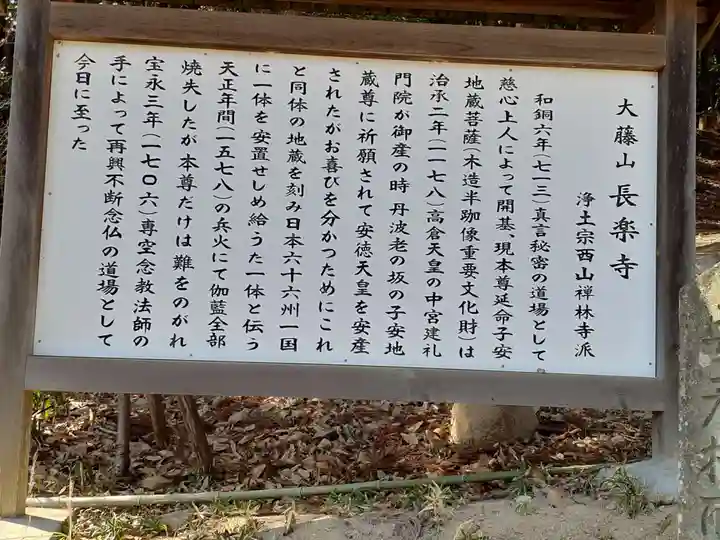 大藤山 長楽寺
浄土宗西山禅林寺派
和銅六年(七一三)真言秘密の道場として
慈心上人によって開基、現本尊延命子安
地蔵菩薩(木造半跏像重要文化財)は
治承二年(一一七八)高倉天皇の中宮建礼
門院が御産の時 丹波老の坂の子安地
蔵尊に祈願されて安徳天皇を安産
されたがお喜びを分かつためにこれ
と同体の地蔵を刻み日本六十六州一国
に一体を安置せしめ給うた一体と伝う
天正年間(一五七八)の兵火にて伽藍全部
焼失したが本尊だけは難をのがれ
宝永三年(一七〇六)専空念教法師の
手によって再興不断念仏の道場として
今日に至った